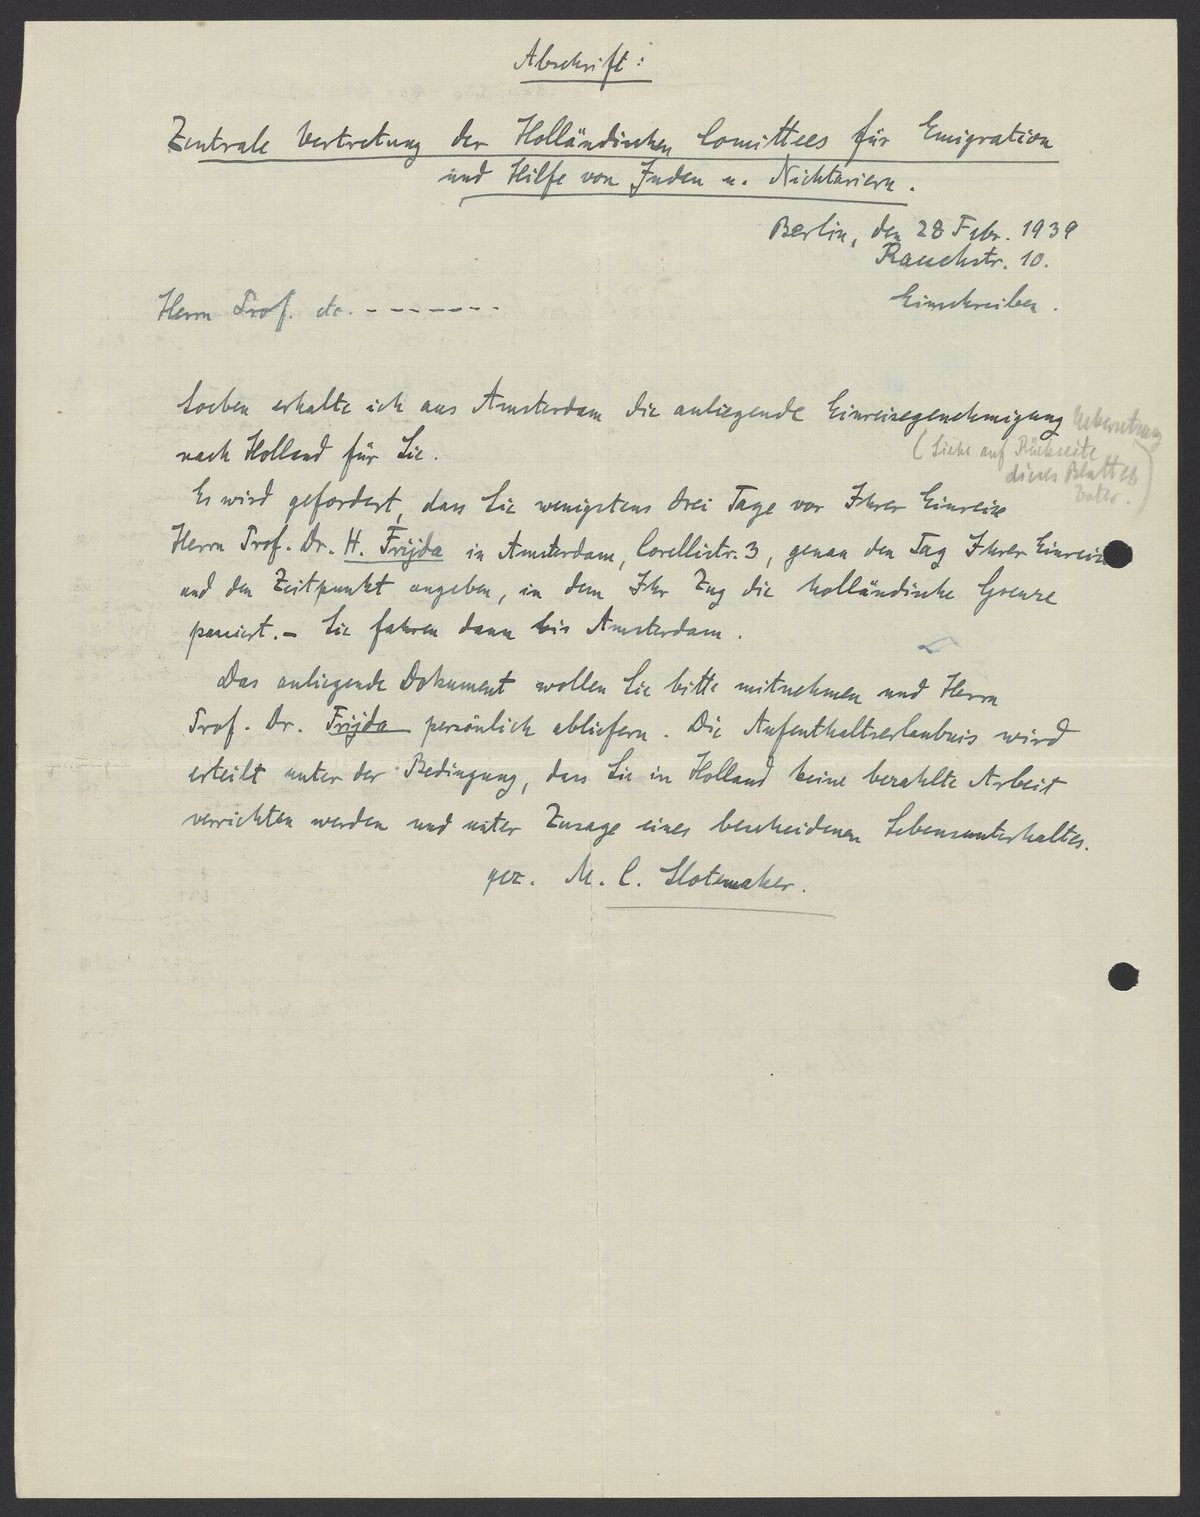 Abschrift:
Zentrale Vertretung der Holländischen Comittees für Emigration
und Hilfe von Juden u. Nichtariern.
Berlin, den 28 Febr. 1939
Rauchstr. 10.
Einschreiben.
Herrn Prof. etc. - - - - - - -
Soeben erhalte ich aus Amsterdam die anliegende Einreisegenehmigung
nach Holland für Sie.
Uebersetzung
(Siehe auf Rückseite
dieses Blattes
Vater.)
Es wird gefordert, dass Sie wenigstens drei Tage vor Ihrer Einreise
Herrn Prof. Dr. H. Frijda in Amsterdam, Corellistr. 3, genau den Tag Ihrer Einreise
und den Zeitpunkt angeben, in dem Ihr Zug die holländische Grenze
passiert. – Sie fahren dann bis Amsterdam.
Das anliegende Dokument wollen Sie bitte mitnehmen und Herrn
Prof. Dr. Frijda persönlich abliefern. Die Aufenthaltserlaubnis wird
erteilt unter der Bedingung, dass Sie in Holland keine bezahlte Arbeit
verrichten werden und unter Zusage eines bescheidenen Lebensunterhaltes.
gez. M. C. Slotemaker.